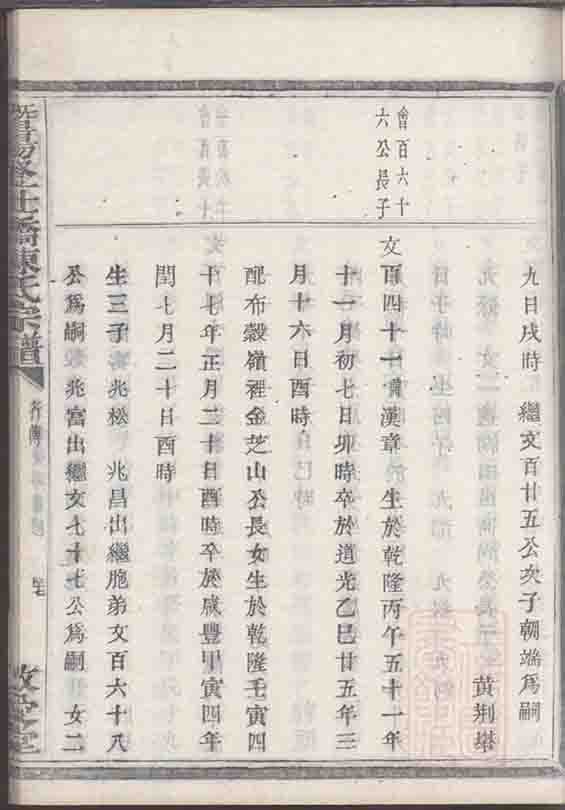 九日戌時　繼文百廿五公次子朝端爲嗣
黃荆塔
會百六十
六公長子
文百四十一 漢章　生於乾隆丙午五十一年
十一月初七日卯時卒於道光乙巳廿五年三
月十六日酉時
配布穀嶺裡金芝山公長女生於乾隆壬寅四
十七年正月二十日酉時卒於咸豐甲寅四年
閏七月二十日酉時
生三子　兆松　兆昌出繼胞弟文百六十八
公爲嗣　兆富出繼文七十七公爲嗣　女二
橋陳氏宗譜